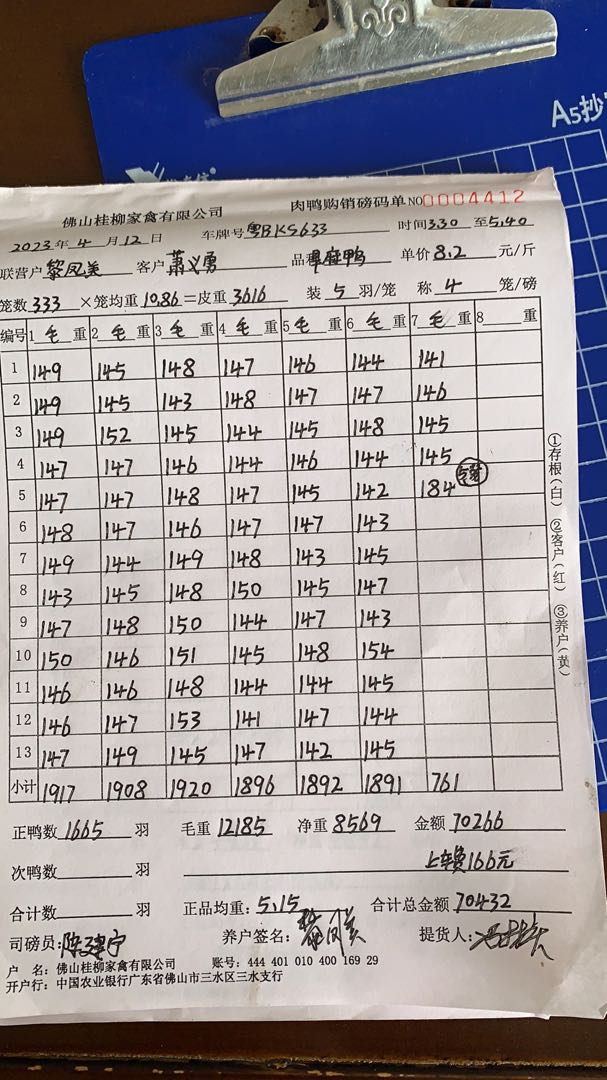 A5抄
佛山桂柳家禽有限公司 肉鸭购销磅码单 NO 0004412
2023年4月12日 车牌号粤BKS633 时间3.30至5.40
联营户黎凤美 客户萧义勇 品种 麻鸭 单价8.2元/斤
笼数333×笼均重10.86=皮重3616 装5羽/笼 称4笼/磅
编号 1毛重 2毛重 3毛重 4毛重 5毛重 6毛重 7毛重 8 重
1 149 145 148 147 146 144 141
2 149 145 143 148 147 147 146
3 149 152 145 144 145 148 145
4 147 147 146 144 146 144 145
5 147 147 148 147 145 142 184
6 148 147 146 147 147 143
7 149 144 149 148 143 145
8 143 145 148 150 145 147
9 147 148 150 144 147 143
10 150 146 151 145 148 154
11 146 146 148 144 144 145
12 146 147 153 141 147 144
13 147 149 145 147 142 145
小计 1917 1908 1920 1896 1892 1891 761
①存根(白) ②客户(红) ③养户(黄)
正鸭数1665羽 毛重12185 净重8569 金额70266
次鸭数 羽 上车费166元
合计数 羽 正品均重:5.15 合计总金额70432
司磅员: 养户签名: 提货人:
户 名:佛山桂柳家禽有限公司 账号:444 401 010 400 169 29
开户行:中国农业银行广东省佛山市三水区三水支行